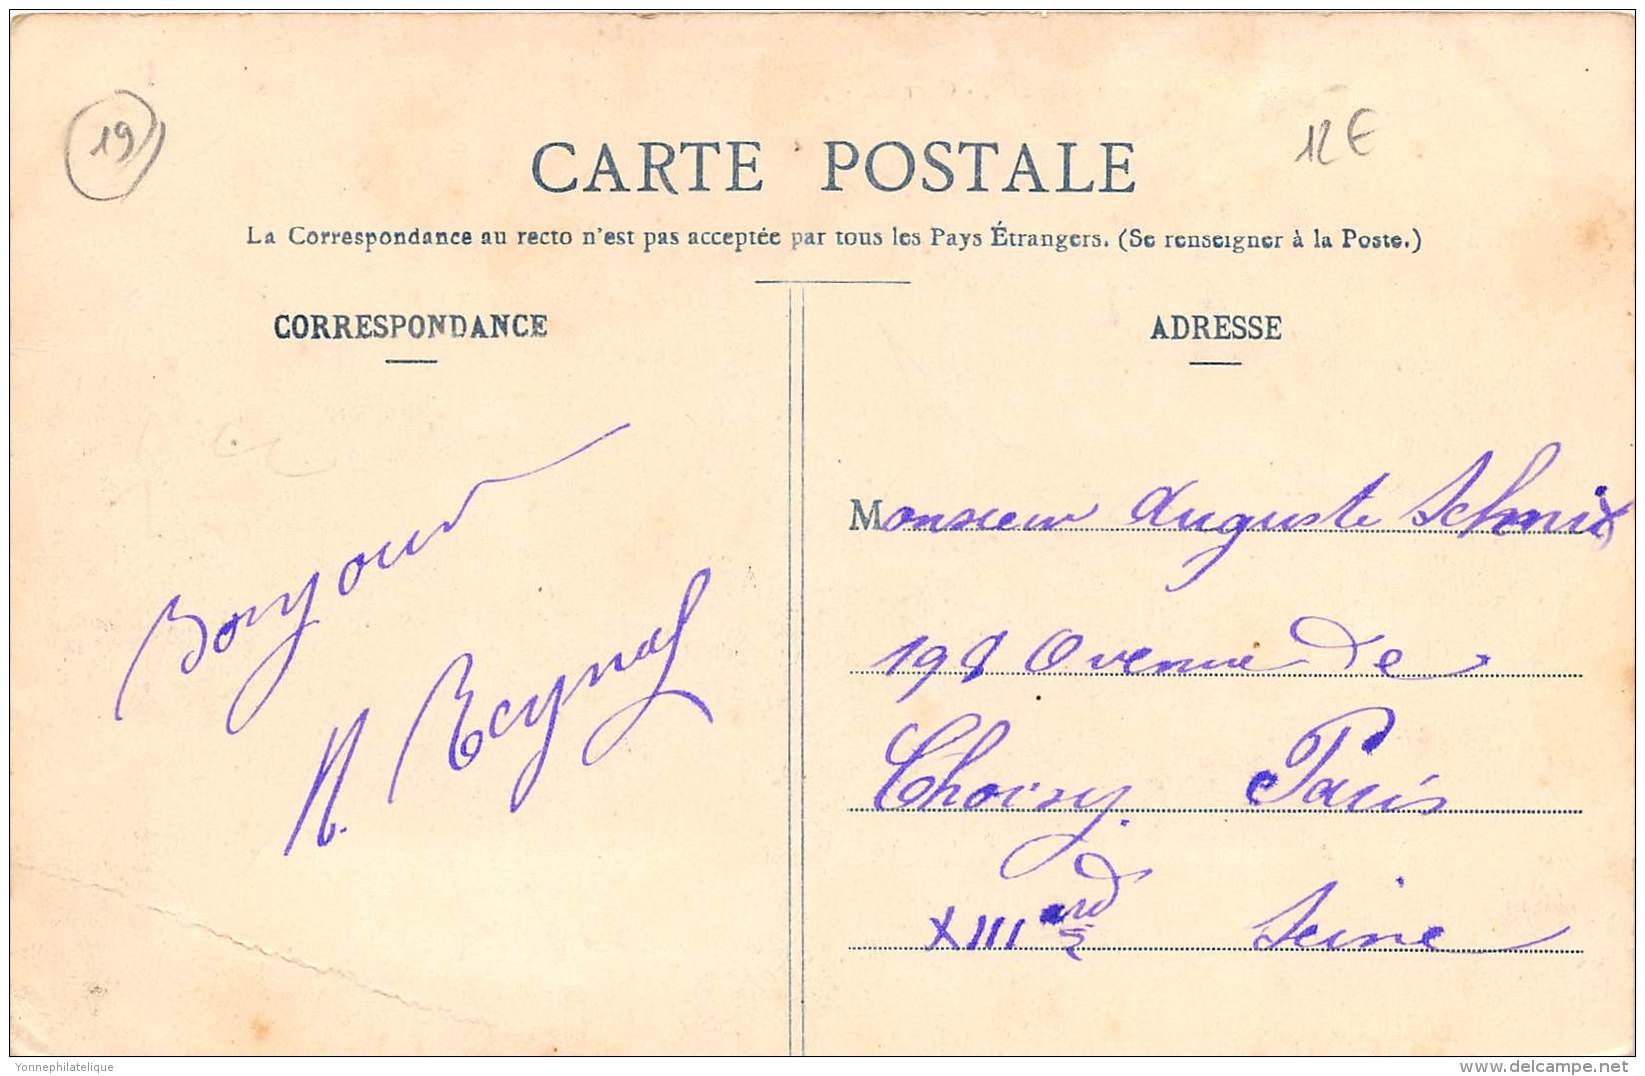 19
12 €
CARTE POSTALE
La Correspondance au recto n'est pas acceptée par tous les Pays Étrangers. (Se renseigner à la Poste.)
CORRESPONDANCE
Bonjour
ADRESSE
Monsieur Auguste
198 Avenue de
Choisy Paris
XIII Seine
Yonnephilatelique
delcampe.net